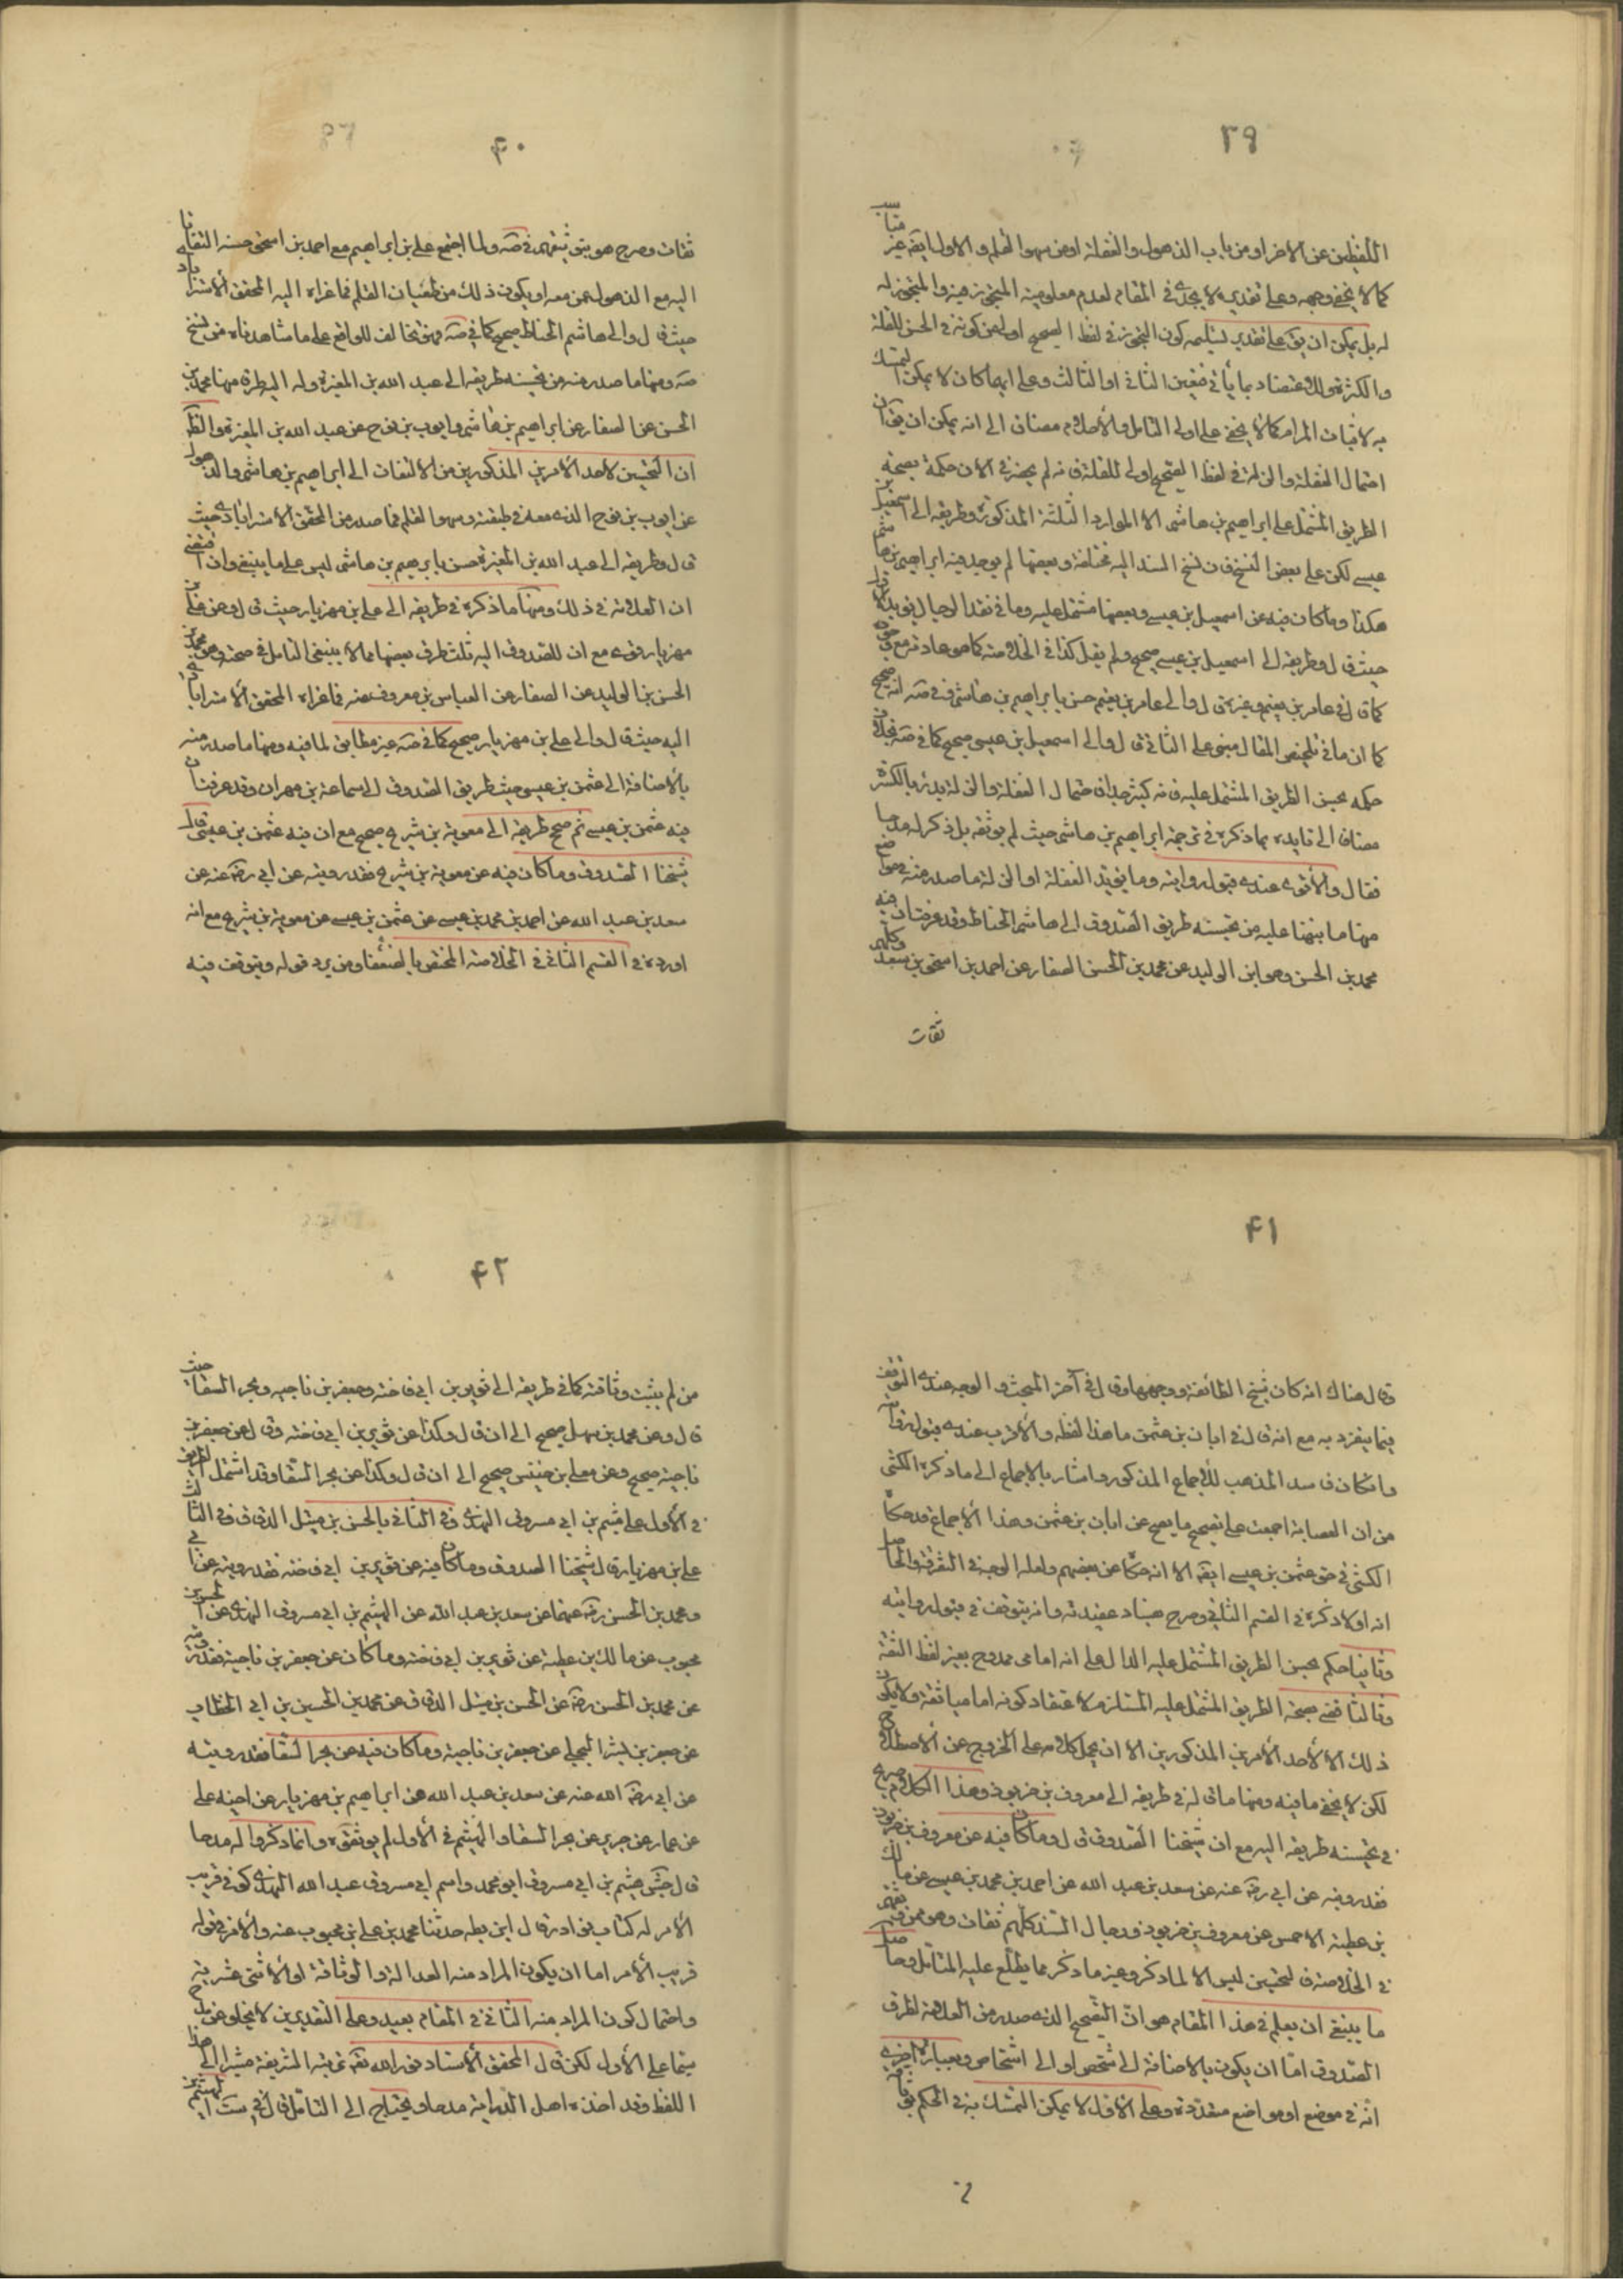 ٣٩
اللفظين عن الاخر او من باب الذهول والغفلة او من سهو القلم والاول ايضا غير مناسب
كما لا يخفى وجهه وعلى تقديره لا يجدى فى المقام لعدم معلومية المتجوز فيه والمتجوز له
له بل يمكن ان يق على تقدير تسليمه كون التجوز فى لفظ الصحيح اولى من كونه فى الحسن للغلبة
والكثرة ولك اعتضاد بما يأتى فتعين الثانى او الثالث وعلى ايهما كان لا يمكن التمسك
به لاثبات المرام كما لا يخفى على اولى التأمل والاحلام مضافا الى انه يمكن ان يق ان
احتمال الغفلة والزلة فى لفظ الصحيح اولى للغلبة فانه لم يحضرنى الان حكمه بصحة
الطريق المشتمل على ابراهيم بن هاشم الا الموارد الثلثة المذكورة وطريقه الى اسمعيل بن
عيسى لكن على بعض النسخ فان نسخ المسند اليه مختلفة وبعضها لم يوجد فيه ابراهيم بن هاشم
هكذا وما كان فيه عن اسمعيل بن عيسى وبعضها مشتمل عليه وما فى نقد الرجال يؤيد الاول
حيث قال وطريقه الى اسمعيل بن عيسى صحيح ولم يقل كذا فى الخلاصة كما هو عادته مع
كما قال فى عامر بن نعيم وغيره قال والى عامر بن نعيم حسن بابراهيم بن هاشم وفى صه انه صحيح
كما ان ما فى تلخيص المقال مبنى على الثانى قال والى اسمعيل بن عيسى صحيح كما فى صه بخلاف
حكمه بحسن الطريق المشتمل عليه فانه كثير جدا فاحتمال الغفلة والزلة يدرء بالكثرة
مضافا الى تايده بما ذكره فى ترجمة ابراهيم بن هاشم حيث لم يوثقه بل ذكر له مدحا
فقال والاقوى عندى قبول روايته وما يؤيد الغفلة او الزلة ما صدر منه فى مواضع
منها ما نبهنا عليه من تحسينه طريق الصدوق الى هاشم الحناط وقد عرفت ان فيه
محمد بن الحسن وهو ابن الوليد عن محمد بن الحسن الصفار عن احمد بن اسحق بن سعد وكلهم
ثقات
٤٠
ثقات وصرح هو بتوثيقهم فى صه ولما اجتمع على بن ابراهيم مع احمد بن اسحق حسنه التفاتا
اليه مع الذهول عمن معه او يكون ذلك من طغيان القلم فما عزاه اليه المحقق الاسترابادى
حيث قال والى هاشم الحناط صحيح كما فى صه فهو مخالف للواقع على ما شاهدناه من نسخ
صه ومنها ما صدر منه من تحسينه طريقه الى عبد الله بن المغيرة وله اليه طرق منها محمد بن
الحسن عن الصفار عن ابراهيم بن هاشم وايوب بن نوح عن عبد الله بن المغيرة والظ
ان التحسين لاحد الامرين المذكورين من الالتفات الى ابراهيم بن هاشم والذهول
عن ايوب بن نوح الذى معه فى طبقته وسهو القلم فما صدر من المحقق الاسترابادى حيث
قال وطريقه الى عبد الله بن المغيرة حسن بابرهيم بن هاشم ليس على ما ينبغى وان اقتفى
ان العلامة فى ذلك ومنها ما ذكره فى طريقه الى على بن مهزيار حيث قال وعن على بن
مهزيار قوى مع ان للصدوق اليه ثلث طرق بعضها مما لا ينبغى التأمل فى صحته وهو محمد بن
الحسن بن الوليد عن الصفار عن العباس بن معروف عنه فما عزاه المحقق الاسترابادى
اليه حيث قال والى على بن مهزيار صحيح كما فى صه غير مطابق لما فيه ومنها ما صدر منه
بالاضافة الى عثمن بن عيسى حيث طريق الصدوق الى سماعة بن مهران وقد عرفت ان
فيه عثمن بن عيسى ثم صحح طريقه الى معوية بن شريح صحيح مع ان فيه عثمن بن عيسى قال
شيخنا الصدوق وما كان فيه عن معوية بن شريح فقد رويته عن ابى رضى عنه عن
سعد بن عبد الله عن احمد بن محمد بن عيسى عن عثمن بن عيسى عن معوية بن شريح مع انه
اورده فى القسم الثانى فى الخلاصة المختص بالضعفاء ومن يرد قوله ويتوقف فيه
٤١
وقال هناك انه كان شيخ الطائفة ووجهها وقال فى آخر المبحث والوجه عندى التوقف
فيما ينفرد به مع انه قال فى ابان بن عثمن ما هذا لفظه والاقرب عندى قبول روايته
وان كان فاسد المذهب للاجماع المذكور واشار بالاجماع الى ما ذكره الكشى
من ان العصابة اجمعت على تصحيح ما يصح عن ابان بن عثمن وهذا الاجماع قد حكاه
الكشى فى حق عثمن بن عيسى ايضا الا انه حكاه عن بعضهم ولعله الوجه فى التفرقة والحاصل
انه اولا ذكره فى القسم الثانى وصرح بفساد عقيدته وانه يتوقف فى قبول روايته
وثانيا حكم بحسن الطريق المشتمل عليه الدال على انه امامى ممدوح بغير لفظ الثقة
وثالثا قضى بصحة الطريق المشتمل عليه المستلزم لاعتقاد كونه اماميا ثقة ولا يكون
ذلك الا لاحد الامرين المذكورين الا ان يحمل كلامه على الخروج عن الاصطلاح
لكن لا يخفى ما فيه ومنها ما قاله فى طريقه الى معروف بن خربوذ وهذا الكلام صريح
فى تحسينه طريقه اليه مع ان شيخنا الصدوق قال وما كان فيه عن معروف بن خربوذ
فقد رويته عن ابى رضى عنه عن سعد بن عبد الله عن احمد بن محمد بن عيسى عن مالك
بن عطية الاحمسى عن معروف بن خربوذ ورجال السند كلهم ثقات وهو ممن وثقهم
فى الخلاصة فالتحسين ليس الا لما ذكر وغير ما ذكر مما يطلع عليه المتأمل وحاصل
ما ينبغى ان يعلم فى هذا المقام هو ان التصحيح الذى صدر من العلامة لطرق
الصدوق اما ان يكون بالاضافة الى شخص او الى اشخاص وبعبارة اخرى
انه فى موضع او مواضع متعددة وعلى الاول لا يمكن التمسك به فى الحكم بوثاقة
٤٢
من لم يثبت وثاقته كما فى طريقه الى ثوير بن ابى فاخته وجعفر بن ناجيه وبحر السقاء حيث
قال وعن محمد بن سهل صحيح الى ان قال وكذا عن ثوير بن ابى فاخته وقال وعن جعفر بن
ناجية صحيح وعن معلى بن خنيس صحيح الى ان قال وكذا عن بحر السقا وقد اشتمل الطريق
فى الاول على هيثم بن ابى مسروق النهدى وفى الثانى بالحسن بن متيل الدقاق وفى الثالث
على بن مهزيار قال شيخنا الصدوق وما كان فيه عن ثوير بن ابى فاخته فقد رويته عن ابى
ومحمد بن الحسن رضى عنهما عن سعد بن عبد الله عن الهيثم بن ابى مسروق النهدى عن الحسن بن
محبوب عن مالك بن عطية عن ثوير بن ابى فاخته وما كان عن جعفر بن ناجية فقد رويته
عن محمد بن الحسن رضى عن الحسن بن متيل الدقاق عن محمد بن الحسين بن ابى الخطاب
عن جعفر بن بشير البجلى عن جعفر بن ناجية وما كان فيه عن بحر السقا فقد رويته
عن ابى رضى الله عنه عن سعد بن عبد الله عن ابراهيم بن مهزيار عن اخيه على
عن حماد عن حريز عن بحر السقا والهيثم فى الاول لم يوثقوه وانما ذكروا له مدحا
قال جش هيثم بن ابى مسروق ابو محمد واسم ابى مسروق عبد الله النهدى كوفى قريب
الامر له كتاب نوادر قال ابن بطه حدثنا محمد بن على بن محبوب عنه والامر فى قوله
قريب الامر اما ان يكون المراد منه العدالة والوثاقة او الاثنى عشرية
واحتمال كون المراد منه الثانى فى المقام بعيد وعلى التقديرين لا يخلو عن مدح
سيما على الاول لكن قال المحقق الاستاد نور الله تعه تربته الشريفة مشيرا الى هذا
اللفظ وقد اخذه اهل الدراية مدحا ويحتاج الى التأمل قال فى ست الهيثم بن